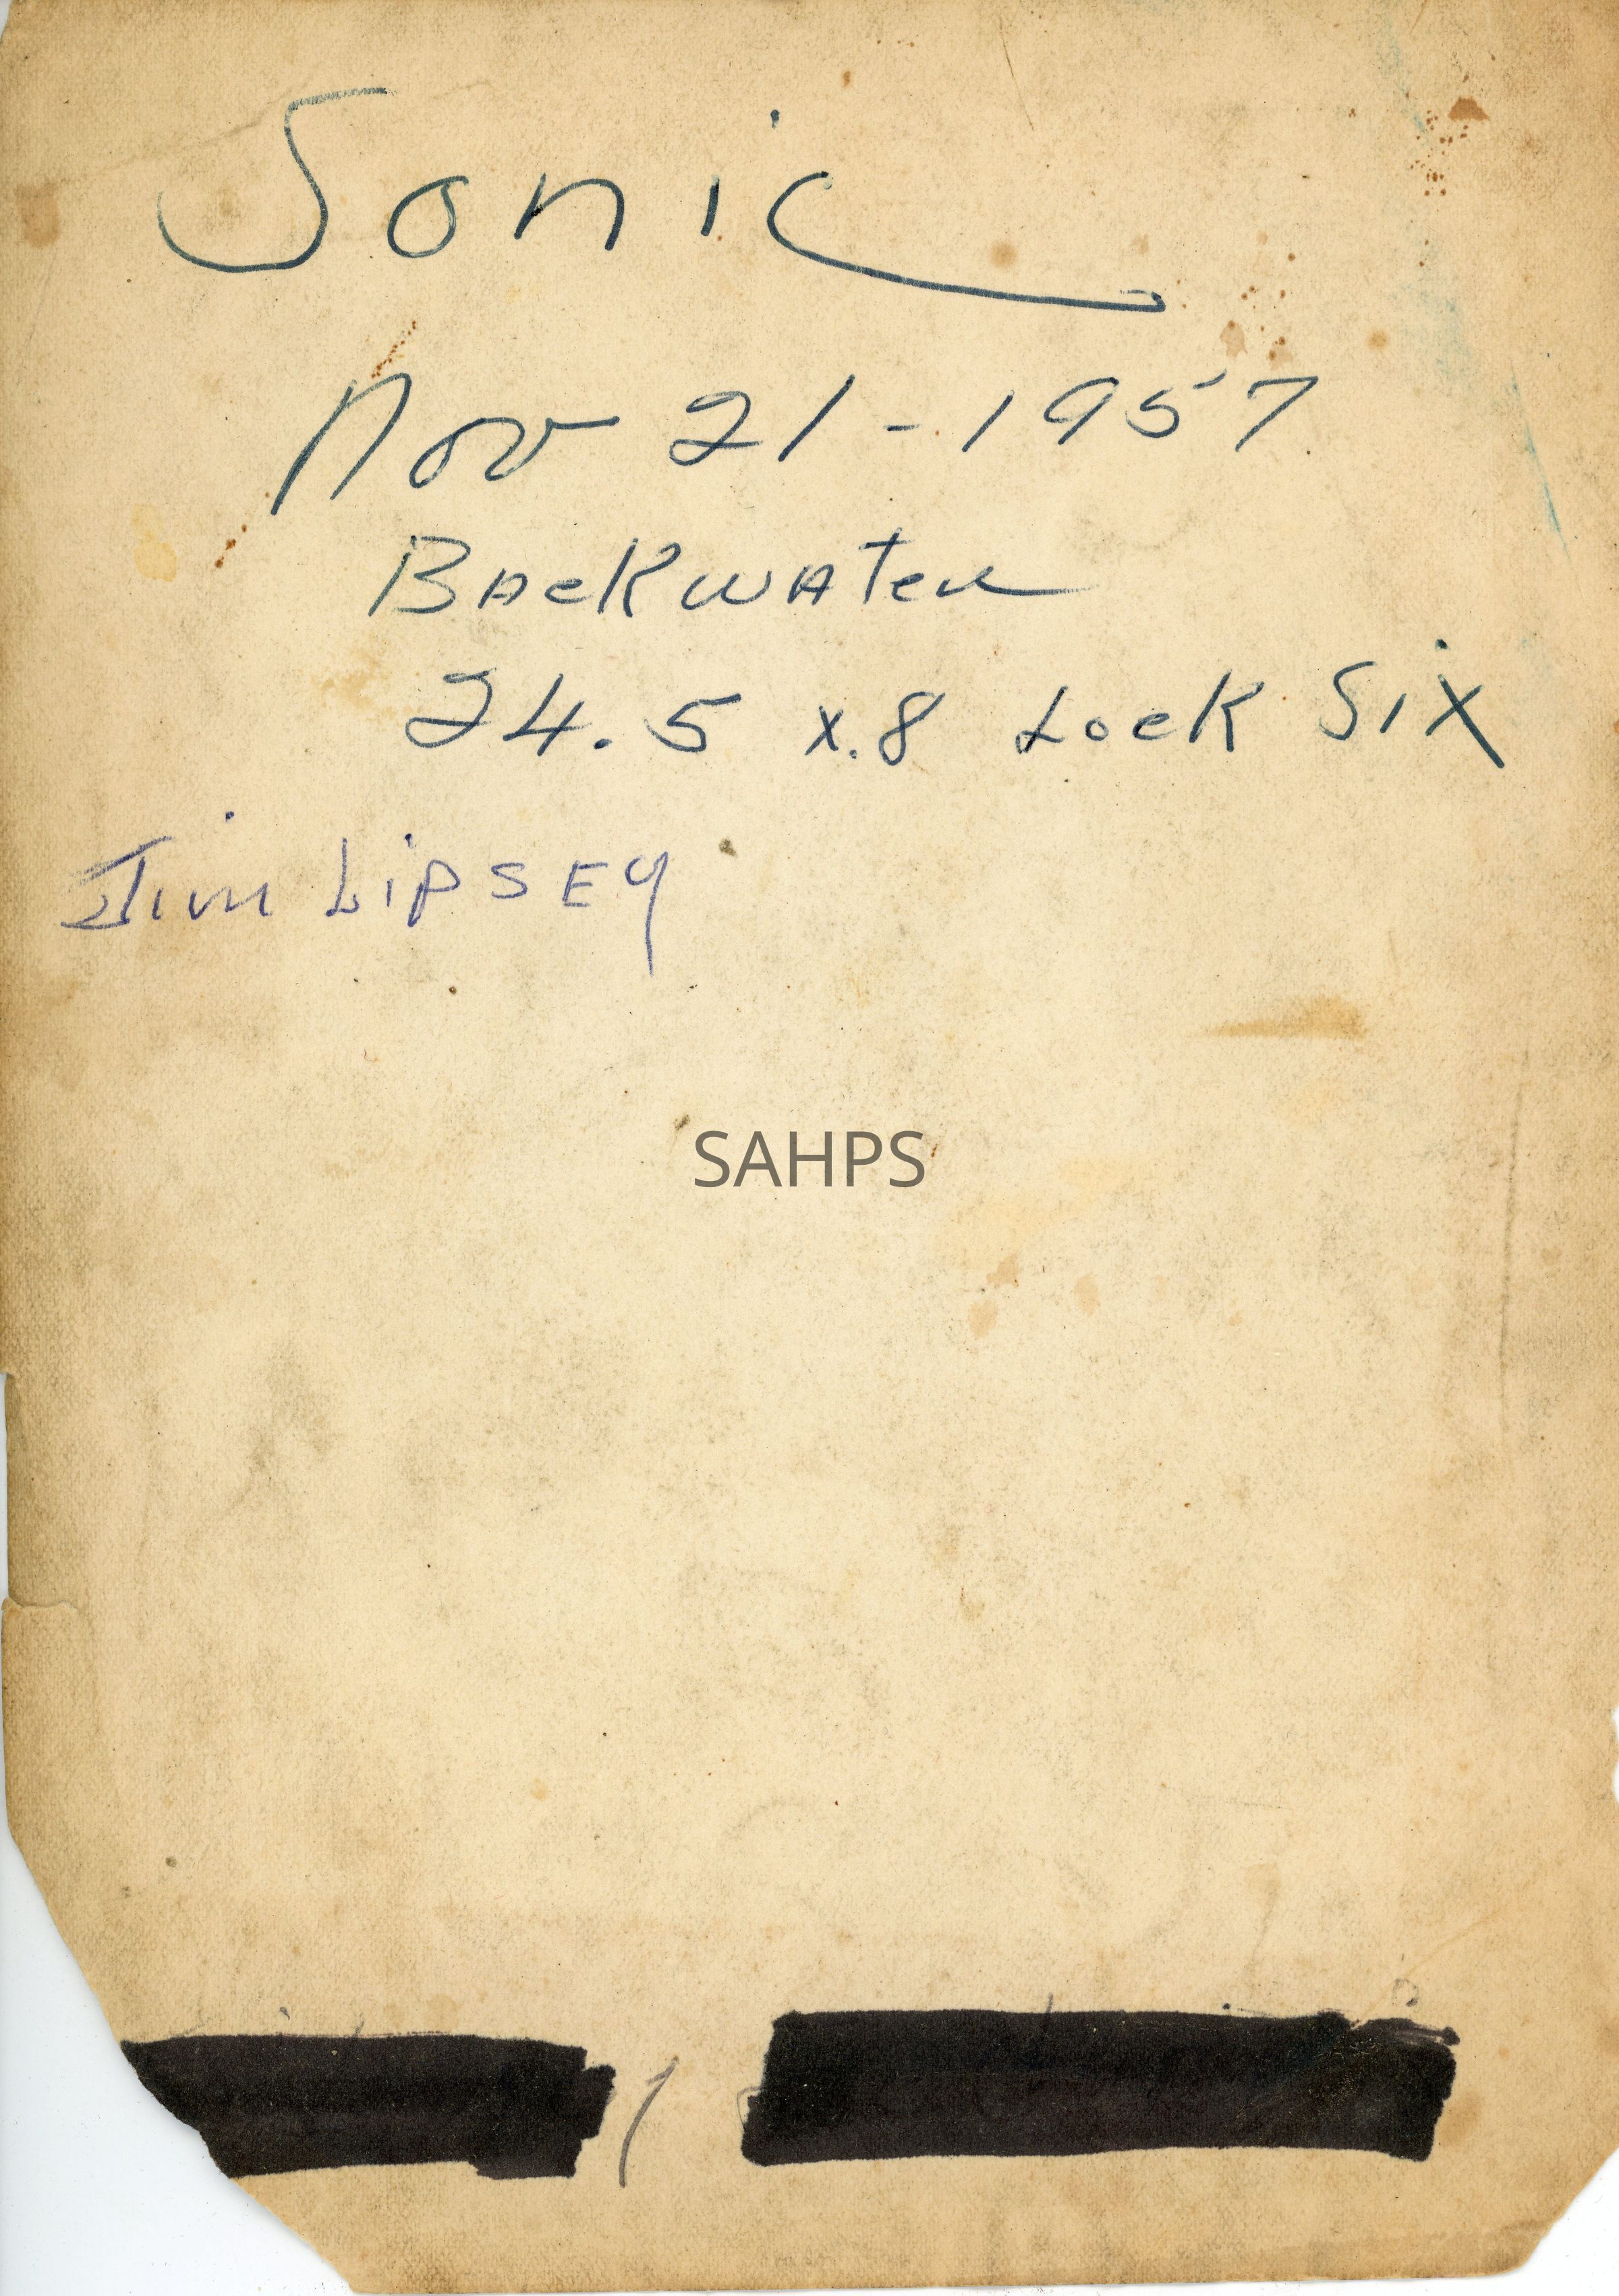 Sonic
Nov 21-1957
BAckwAter
24.5 x.8 Lock Six
Jim LiPSEY
SAHPS